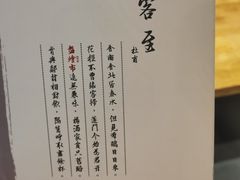 客至
杜甫
舍南舍北皆春水，但見群鷗日日來。
花徑不曾緣客掃，蓬門今始為君開。
盤飧市遠無兼味，樽酒家貧只舊醅。
肯與鄰翁相對飲，隔籬呼取盡餘杯。